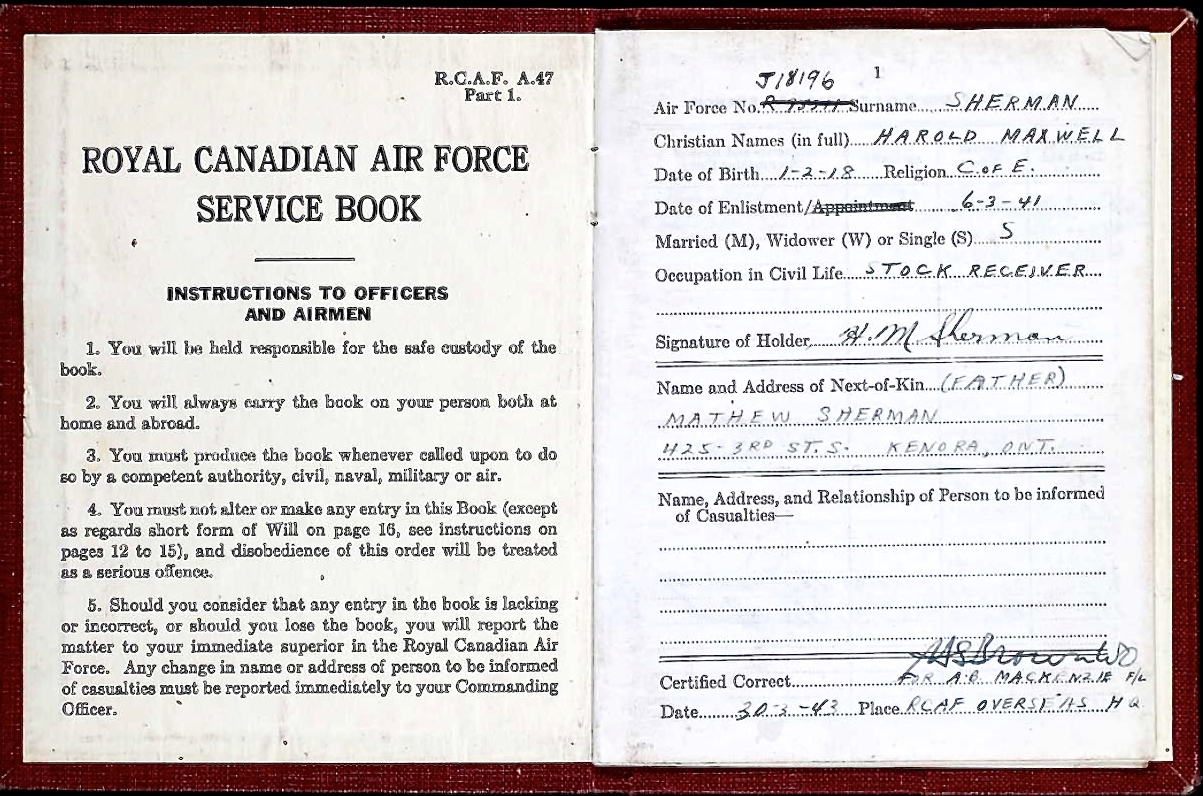 R.C.A.F. A.47
Part 1.
ROYAL CANADIAN AIR FORCE
SERVICE BOOK
INSTRUCTIONS TO OFFICERS
AND AIRMEN
1. You will be held responsible for the safe custody of the
book.
2. You will always carry the book on your person both at
home and abroad.
3. You must produce the book whenever called upon to do
so by a competent authority, civil, naval, military or air.
4. You must not alter or make any entry in this Book (except
as regards short form of Will on page 16, see instructions on
pages 12 to 15), and disobedience of this order will be treated
as a serious offence.
5. Should you consider that any entry in the book is lacking
or incorrect, or should you lose the book, you will report the
matter to your immediate superior in the Royal Canadian Air
Force. Any change in name or address of person to be informed
of casualties must be reported immediately to your Commanding
Officer.
J18196 1
Air Force No. Surname SHERMAN
Christian Names (in full) HAROLD MAXWELL
Date of Birth 1-2-18 Religion C. OF E.
Date of Enlistment/Appointment 6-3-41
Married (M), Widower (W) or Single (S) S
Occupation in Civil Life STOCK RECEIVER
Signature of Holder H. M Sherman
Name and Address of Next-of-Kin (FATHER)
MATHEW SHERMAN
425-3RD ST. S. KENORA, ONT.
Name, Address, and Relationship of Person to be informed
of Casualties—
Certified Correct FOR A.B. MACKENZIE F/L
Date 30-3-43 Place RCAF OVERSEAS HQ